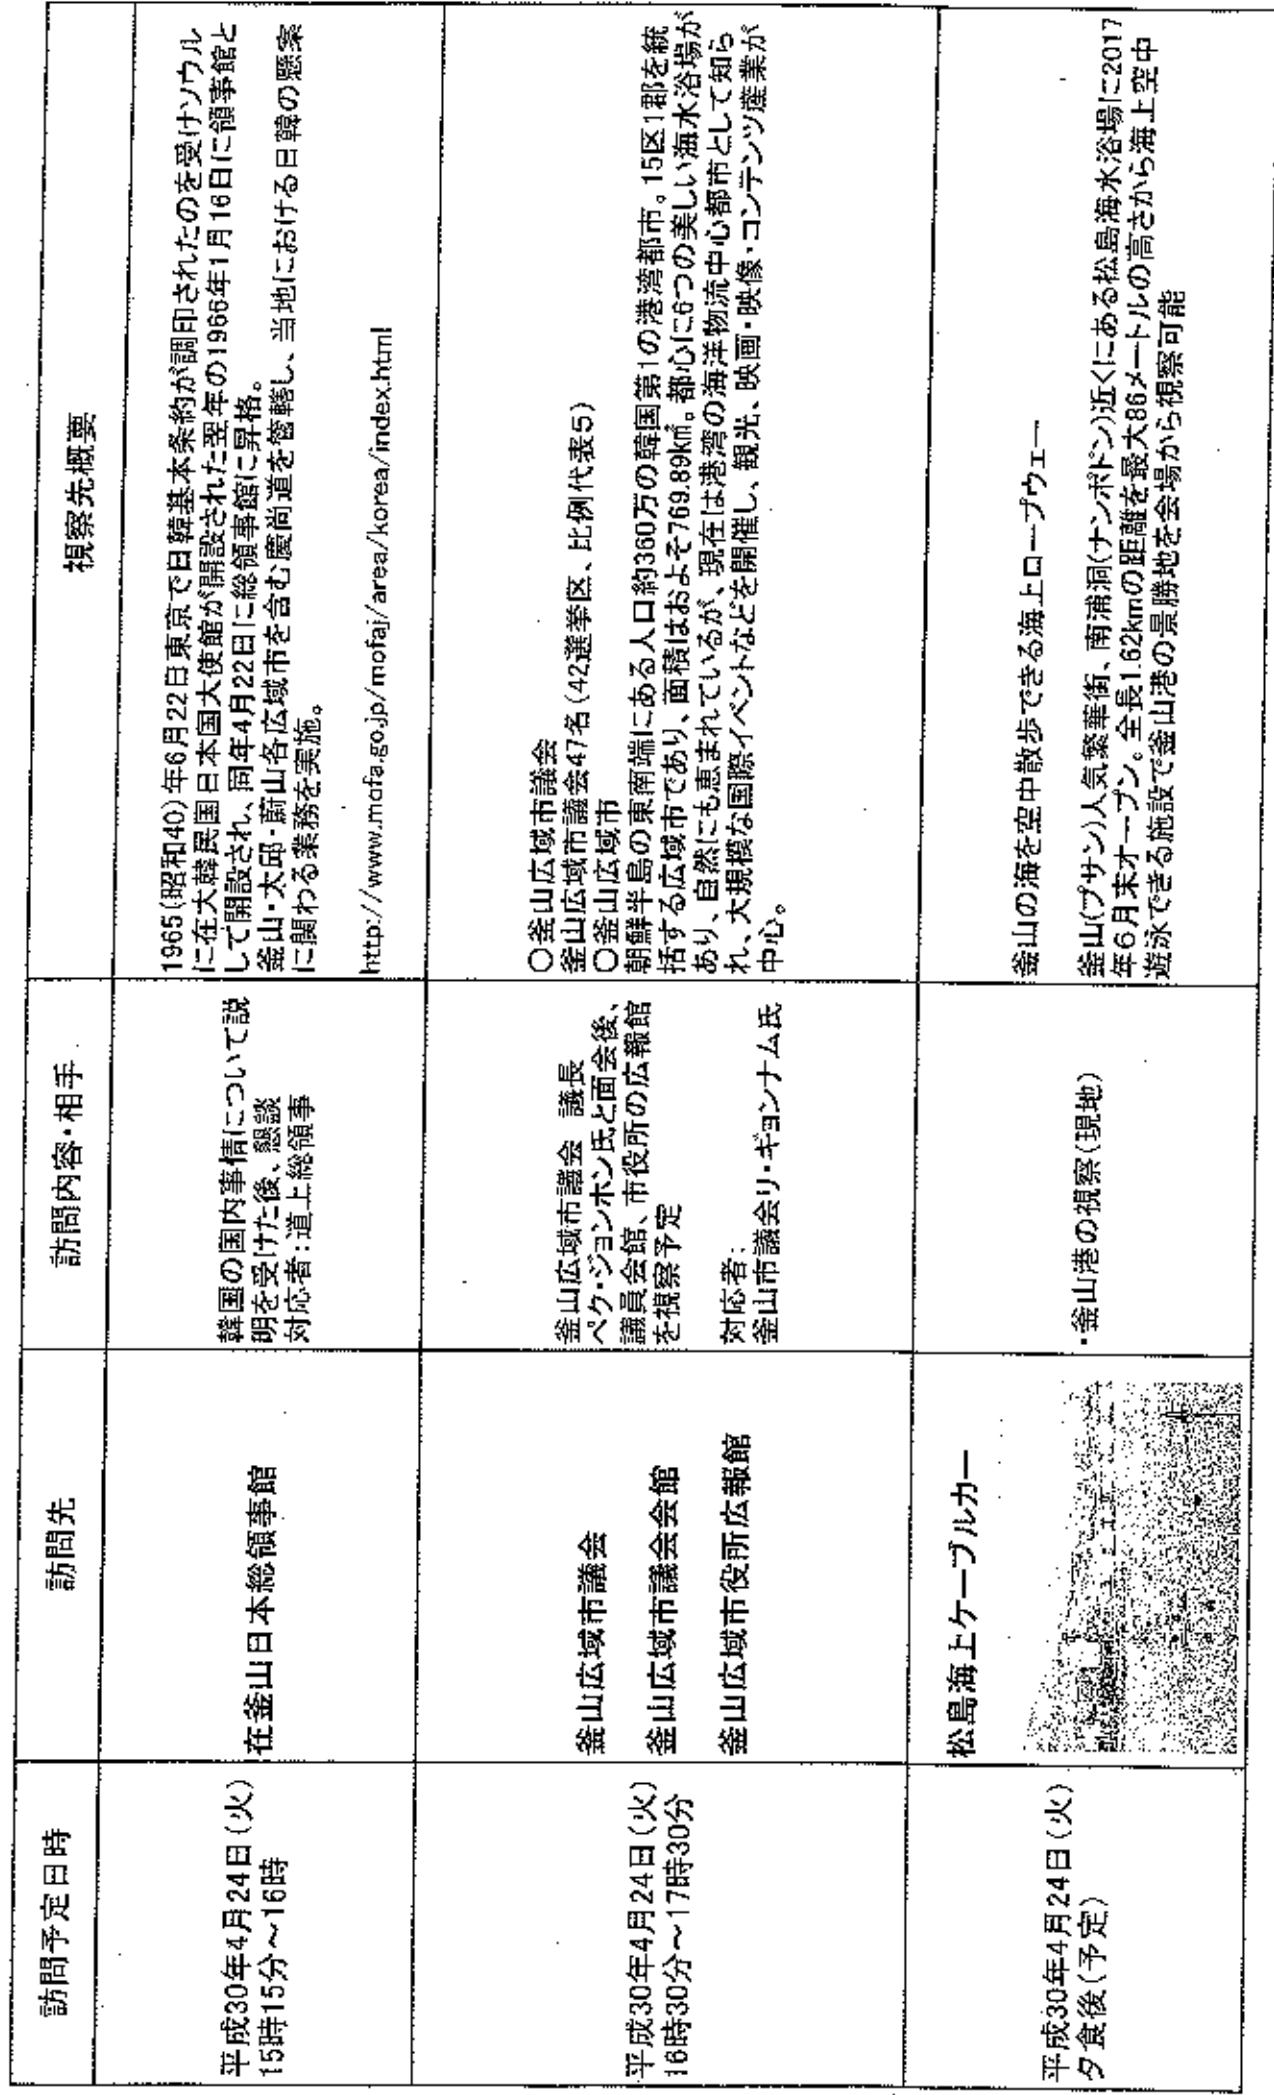 訪問予定日時
訪問先
訪問内容・相手
視察先概要
平成30年4月24日(火)
15時15分～16時
在釜山日本総領事館
韓国の国内事情について説
明を受けた後、懇談
対応者:道上総領事
1965(昭和40)年6月22日東京で日韓基本条約が調印されたのを受けソウル
に在大韓民国日本国大使館が開設された翌年の1966年1月16日に領事館と
して開設され、同年4月22日に総領事館に昇格。
釜山・大邱・蔚山各広域市を含む慶尚道を管轄し、当地における日韓の懸案
に関わる業務を実施。
http://www.mofa.go.jp/mofaj/area/korea/index.html
平成30年4月24日(火)
16時30分～17時30分
釜山広域市議会
釜山広域市議会会館
釜山広域市役所広報館
釜山広域市議会 議長
ペク・ジョンホン氏と面会後、
議員会館、市役所の広報館
を視察予定
対応者:
釜山市議会リ・ギョンナム氏
〇釜山広域市議会
釜山広域市議会47名(42選挙区、比例代表5)
〇釜山広域市
朝鮮半島の東南端にある人口約360万の韓国第1の港湾都市。15区1郡を統
括する広域市であり、面積はおよそ769.89k㎡。都心に6つの美しい海水浴場が
あり、自然にも恵まれているが、現在は港湾の海洋物流中心都市として知ら
れ、大規模な国際イベントなどを開催し、観光、映画・映像・コンテンツ産業が
中心。
平成30年4月24日(火)
夕食後(予定)
松島海上ケーブルカー
・釜山港の視察(現地)
釜山の海を空中散歩できる海上ロープウェー
釜山(プサン)人気繁華街、南浦洞(ナンポドン)近くにある松島海水浴場に2017
年6月末オープン。全長1.62kmの距離を最大86メートルの高さから海上空中
遊泳できる施設で釜山港の景勝地を会場から視察可能